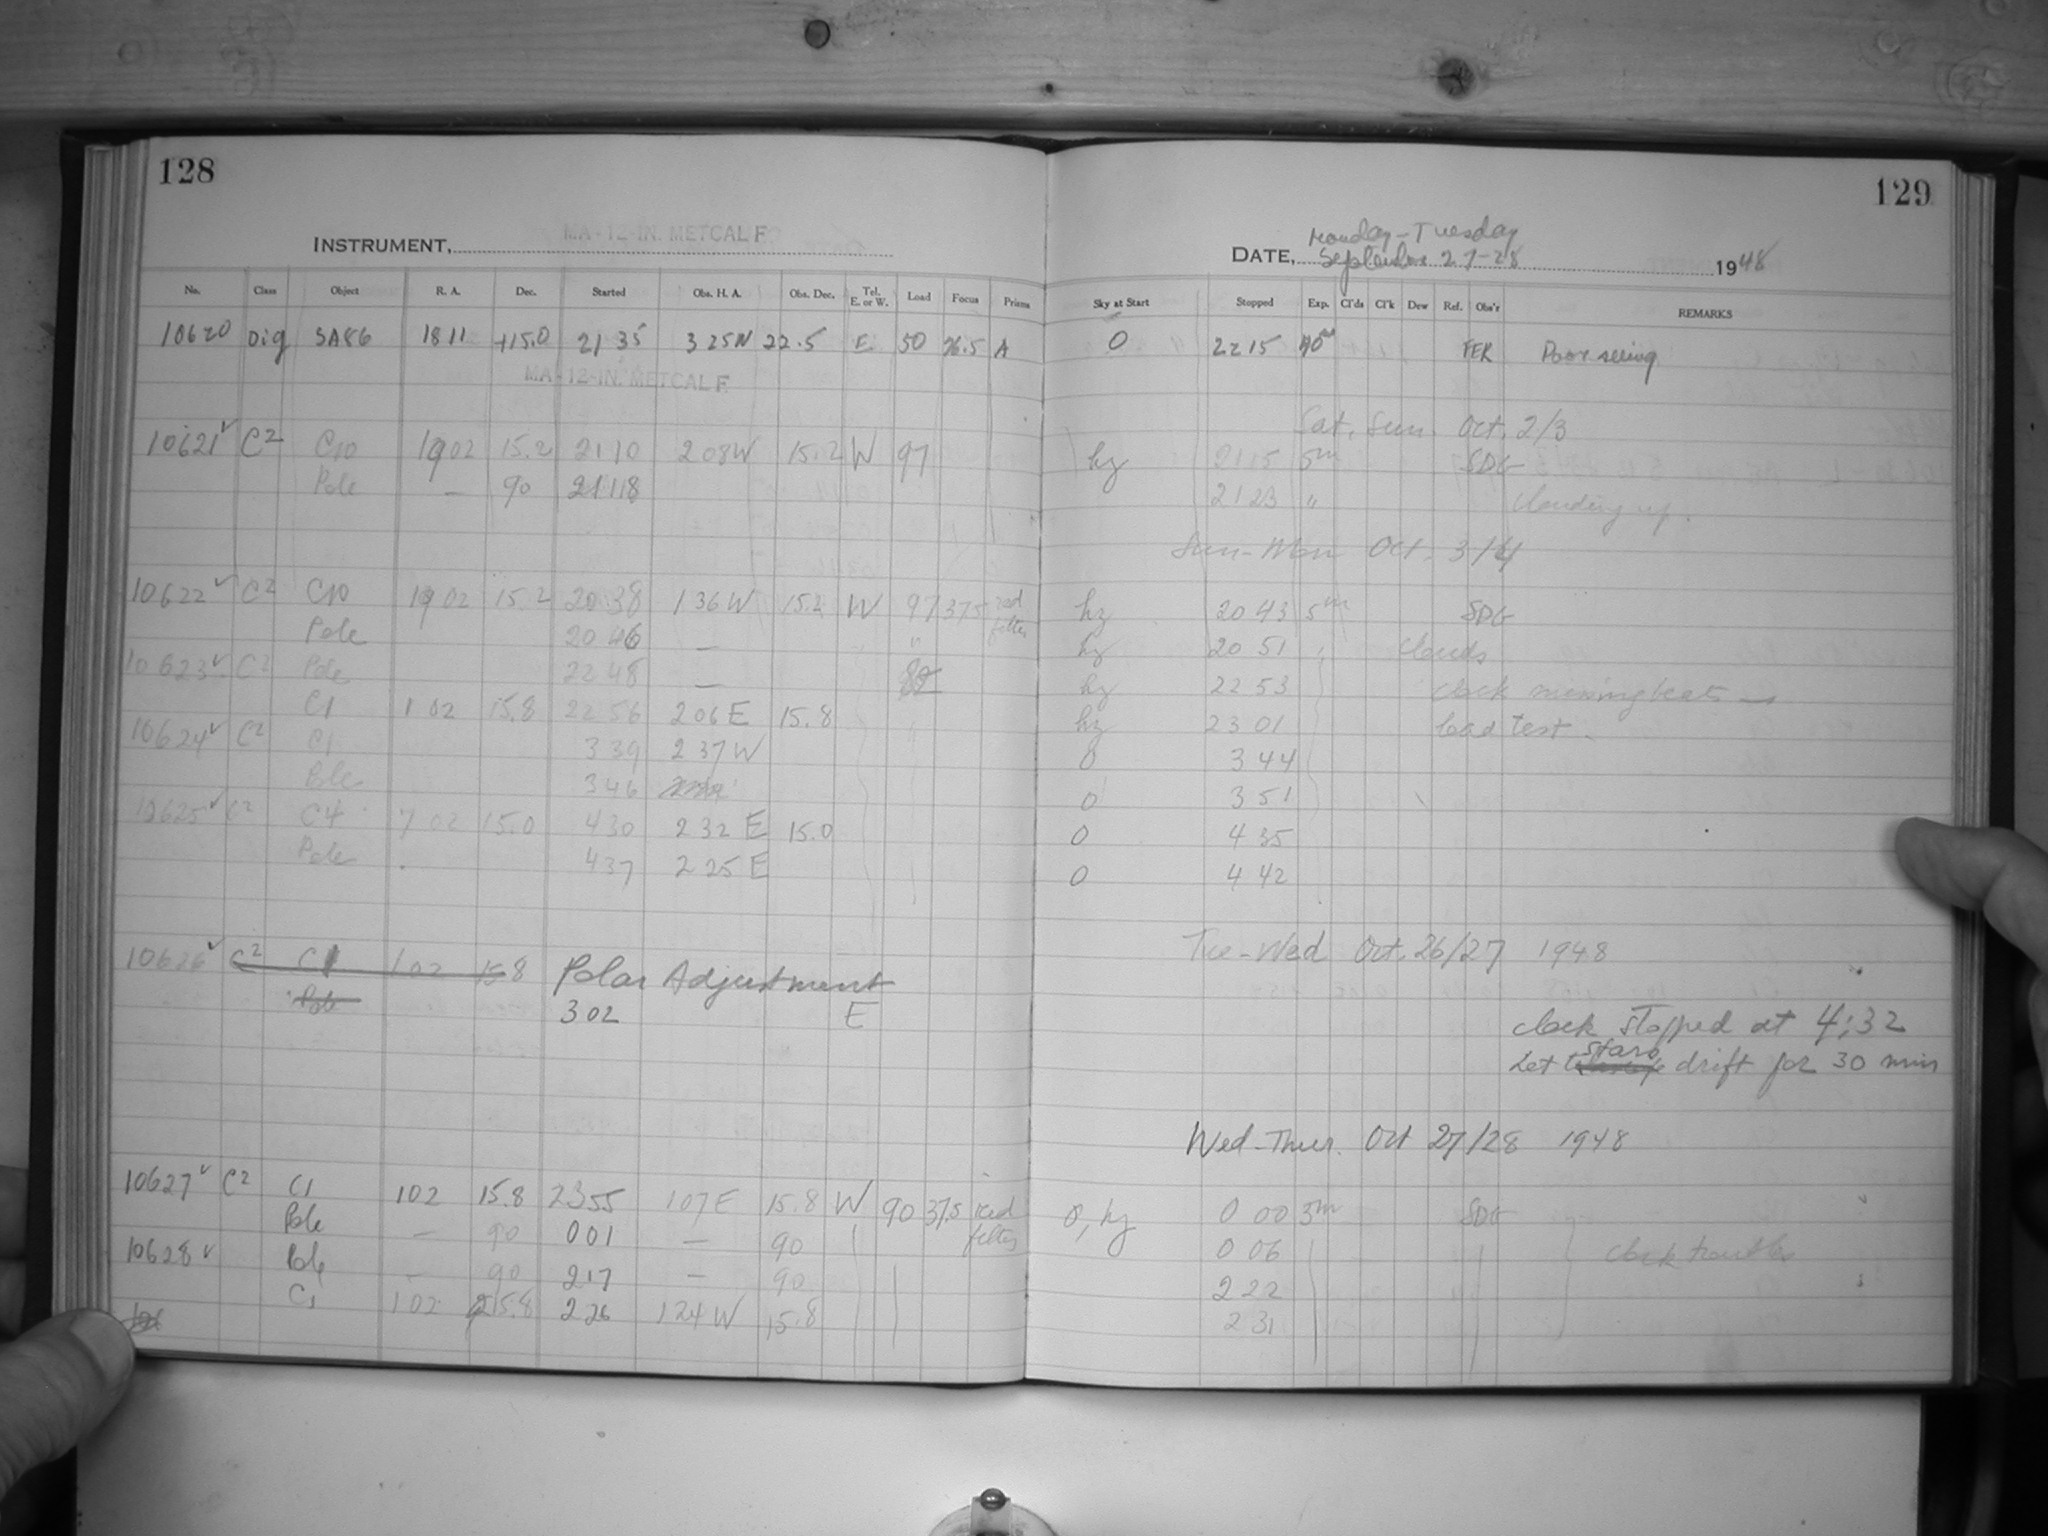 128
129
INSTRUMENT, MA-12-IN. METCALF
DATE, Monday-Tuesday September 27-28 1948
No. Class Object R. A. Dec. Started Obs. H. A. Obs. Dec. Tel. E. or W. Load Focus Prisms Sky at Start Stopped Exp. Cl'ds Cl'k Dew Ref. Obs'r REMARKS
10620 Dig SA86 18 11 +15.0 21 35 3 25 W 22.5 E 50 26.5 A 0 22 15 40 FER Poor seeing
MA-12-IN. METCALF
Sat, Sun. Oct. 2/3
10621 ✓ C2 C10 19 02 15.2 21 10 2 08 W 15.2 W 97 hz 21 15 5m SDG
Pole — 90 21 18 21 23 " Clouding up.
Sun-Mon Oct. 3/4
10622 ✓ C2 C10 19 02 15.2 20 38 1 36 W 15.2 W 97 37.5 red filter hz 20 43 5m SDG
Pole 20 46 — " hz 20 51 clouds
10623 ✓ C2 Pole 22 48 — hz 22 53 clock missing beats —
C1 1 02 15.8 22 56 2 06 E 15.8 hz 23 01 load test.
10624 ✓ C2 C1 3 39 2 37 W 0 3 44
Pole 3 46 0 3 51
10625 ✓ C2 C4 7 02 15.0 4 30 2 32 E 15.0 0 4 35
Pole 4 37 2 25 E 0 4 42
Tue-Wed Oct. 26/27 1948
10626 ✓ C2 C1 1 02 15.8 Polar Adjustment
Pole 3 02 E clock stopped at 4:32
Let stars drift for 30 min
Wed-Thur. Oct 27/28 1948
10627 ✓ C2 C1 1 02 15.8 23 55 1 07 E 15.8 W 90 37.5 red filter 0, hz 0 00 5m SDG
Pole — 90 0 01 — 90 0 06 clock trouble
10628 ✓ Pole — 90 2 17 — 90 2 22
C1 1 02 15.8 2 26 1 24 W 15.8 2 31